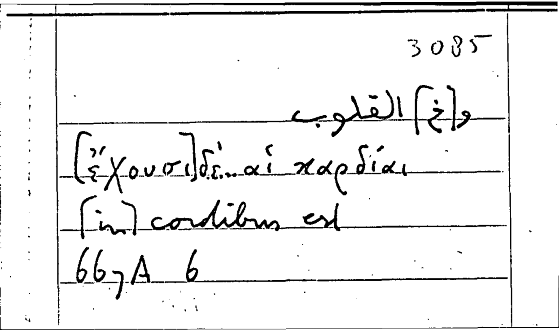 3085
و[في] القلوب
[ἔχουσι] δὲ.. αἱ καρδίαι
[in] cordibus est
667A 6